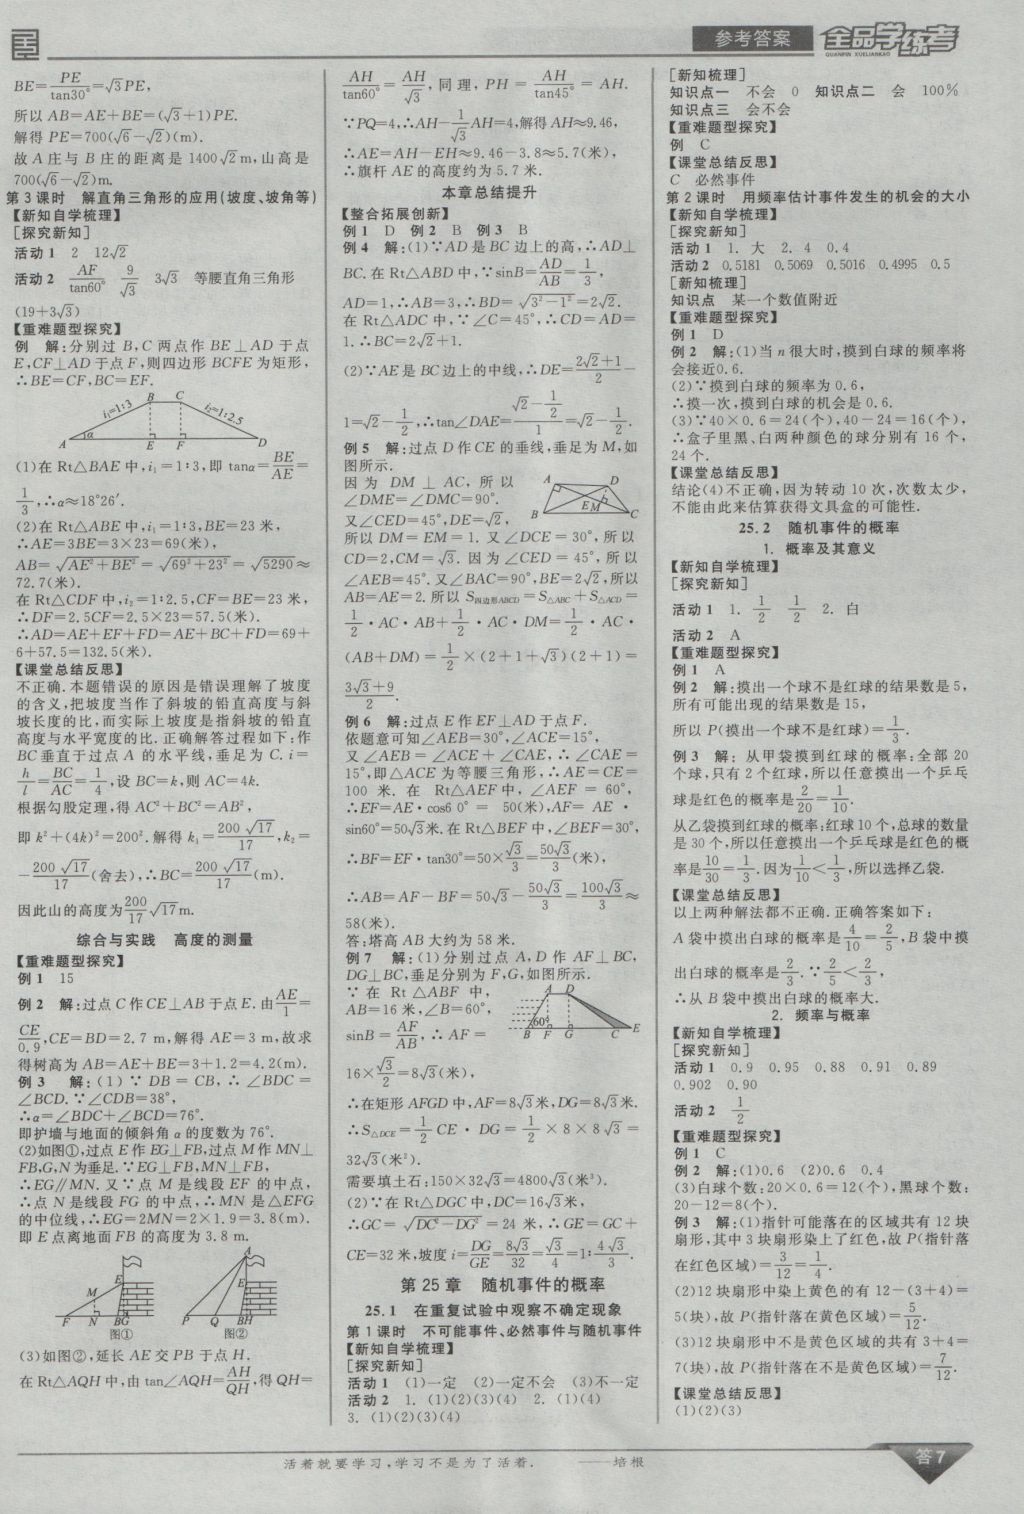 参考答案
全品学练考
QUANPIN XUELIANKAO
BE=PE/tan30°=√3PE,
所以 AB=AE+BE=(√3+1)PE.
解得 PE=700(√6-√2)(m).
故 A 庄与 B 庄的距离是 1400√2 m,山高是
700(√6-√2)m.
第 3 课时 解直角三角形的应用(坡度、坡角等)
【新知自学梳理】
[探究新知]
活动 1 2 12√2
活动 2 AF/tan60° 9/√3 3√3 等腰直角三角形
(19+3√3)
【重难题型探究】
例 解:分别过 B,C 两点作 BE⊥AD 于点
E,CF⊥AD 于点 F,则四边形 BCFE 为矩形,
∴BE=CF,BC=EF.
B C
i₁=1:3 i₂=1:2.5
A α E F D
(1)在 Rt△BAE 中,i₁=1:3,即 tanα=BE/AE=
1/3,∴α≈18°26′.
(2)在 Rt△ABE 中,i₁=1:3,BE=23 米,
∴AE=3BE=3×23=69(米),
AB=√(AE²+BE²)=√(69²+23²)=√5290≈
72.7(米).
在 Rt△CDF 中,i₂=1:2.5,CF=BE=23 米,
∴DF=2.5CF=2.5×23=57.5(米).
∴AD=AE+EF+FD=AE+BC+FD=69+
6+57.5=132.5(米).
【课堂总结反思】
不正确.本题错误的原因是错误理解了坡度
的含义,把坡度当作了斜坡的铅直高度与斜
坡长度的比,而实际上坡度是指斜坡的铅直
高度与水平宽度的比.正确解答过程如下:作
BC 垂直于过点 A 的水平线,垂足为 C. i=
h/l=BC/AC=1/4,设 BC=k,则 AC=4k.
根据勾股定理,得 AC²+BC²=AB²,
即 k²+(4k)²=200².解得 k₁=200√17/17,k₂=
-200√17/17(舍去),∴BC=200√17/17(m).
因此山的高度为200/17√17m.
综合与实践 高度的测量
【重难题型探究】
例 1 15
例 2 解:过点 C 作 CE⊥AB 于点 E.由AE/1=
CE/0.9,CE=BD=2.7 m,解得 AE=3 m,故求
得树高为 AB=AE+BE=3+1.2=4.2(m).
例 3 解:(1)∵DB=CB,∴∠BDC=
∠BCD.∵∠CDB=38°,
∴α=∠BDC+∠BCD=76°.
即护墙与地面的倾斜角 α 的度数为 76°.
(2)如图①,过点 E 作 EG⊥FB,过点 M 作 MN⊥
FB,G,N 为垂足.∵EG⊥FB,MN⊥FB,
∴EG∥MN.又∵点 M 是线段 EF 的中点,
∴点 N 是线段 FG 的中点,∴MN 是△EFG
的中位线,∴EG=2MN=2×1.9=3.8(m).
即 E 点离地面 FB 的高度为 3.8 m.
A
E E
M
F N BG P Q BH
图① 图②
(3)如图②,延长 AE 交 PB 于点 H.
在 Rt△AQH 中,由 tan∠AQH=AH/QH,得 QH=
AH/tan60°=AH/√3,同理,PH=AH/tan45°=AH.
∵PQ=4,∴AH-1/√3AH=4,解得 AH≈9.46,
∴AE=AH-EH≈9.46-3.8≈5.7(米),
∴旗杆 AE 的高度约为 5.7 米.
本章总结提升
【整合拓展创新】
例 1 D 例 2 B 例 3 B
例 4 解:(1)∵AD 是 BC 边上的高,∴AD⊥
BC.在 Rt△ABD 中,∵sinB=AD/AB=1/3,
AD=1,∴AB=3,∴BD=√(3²-1²)=2√2.
在 Rt△ADC 中,∵∠C=45°,∴CD=AD=
1.∴BC=2√2+1.
(2)∵AE 是 BC 边上的中线,∴DE=(2√2+1)/2-
1=√2-1/2,∴tan∠DAE=(√2-1/2)/1=√2-1/2.
例 5 解:过点 D 作 CE 的垂线,垂足为 M,如
图所示.
因为 DM⊥AC,所以
∠DME=∠DMC=90°.
又∠CED=45°,DE=√2,
A D
E M
B C
所以 DM=EM=1.又∠DCE=30°,所以
CD=2,CM=√3.因为∠CED=45°,所以
∠AEB=45°.又∠BAC=90°,BE=2√2,所以
AB=AE=2.所以 S四边形ABCD=S△ABC+S△ACD=
1/2·AC·AB+1/2·AC·DM=1/2·AC·
(AB+DM)=1/2×(2+1+√3)(2+1)=
(3√3+9)/2.
例 6 解:过点 E 作 EF⊥AD 于点 F.
依题意可知∠AEB=30°,∠ACE=15°,
又∠AEB=∠ACE+∠CAE,∴∠CAE=
15°,即△ACE 为等腰三角形,∴AE=CE=
100 米.在 Rt△AEF 中,∠AEF=60°,
∴EF=AE·cos60°=50(米),AF=AE·
sin60°=50√3米.在 Rt△BEF 中,∠BEF=30°,
∴BF=EF·tan30°=50×√3/3=50√3/3(米),
∴AB=AF-BF=50√3-50√3/3=100√3/3≈
58(米).
答:塔高 AB 大约为 58 米.
例 7 解:(1)分别过点 A,D 作 AF⊥BC,
DG⊥BC,垂足分别为 F,G,如图所示.
∵在 Rt△ABF 中,
AB=16 米,∠B=60°,
sinB=AF/AB,∴AF=
A D
60°
B F G C E
16×√3/2=8√3(米),
∴在矩形 AFGD 中,AF=8√3米,DG=8√3米.
∴S△DCE=1/2 CE·DG=1/2×8×8√3=
32√3(米²).
需要填土石:150×32√3=4800√3(米³).
(2)∵在 Rt△DGC 中,DC=16√3米,
∴GC=√(DC²-DG²)=24 米,∴GE=GC+
CE=32 米,坡度 i=DG/GE=8√3/32=√3/4=1:4√3/3.
第 25 章 随机事件的概率
25.1 在重复试验中观察不确定现象
第 1 课时 不可能事件、必然事件与随机事件
【新知自学梳理】
[探究新知]
活动 1 (1)一定 (2)一定不会 (3)不一定
活动 2 1. (1)(2)(3)(4) 2. (1)(4)
3. (1)(2)(3)(4)
[新知梳理]
知识点一 不会 0 知识点二 会 100%
知识点三 会不会
【重难题型探究】
例 C
【课堂总结反思】
C 必然事件
第 2 课时 用频率估计事件发生的机会的大小
【新知自学梳理】
[探究新知]
活动 1 1. 大 2. 4 0.4
活动 2 0.5181 0.5069 0.5016 0.4995 0.5
[新知梳理]
知识点 某一个数值附近
【重难题型探究】
例 1 D
例 2 解:(1)当 n 很大时,摸到白球的频率将
会接近0.6.
(2)∵摸到白球的频率为 0.6,
∴摸一次,摸到白球的机会是 0.6.
(3)∵40×0.6=24(个),40-24=16(个),
∴盒子里黑、白两种颜色的球分别有 16 个,
24 个.
【课堂总结反思】
结论(4)不正确,因为转动 10 次,次数太少,
不能由此来估算获得文具盒的可能性.
25.2 随机事件的概率
1. 概率及其意义
【新知自学梳理】
[探究新知]
活动 1 1. 1/2 1/2 2. 白
活动 2 A
【重难题型探究】
例 1 A
例 2 解:摸出一个球不是红球的结果数是 5,
所有可能出现的结果数是 15,
所以 P(摸出一个球不是红球)=1/3.
例 3 解:从甲袋摸到红球的概率:全部 20
个球,只有 2 个红球,所以任意摸出一个乒乓
球是红色的概率是2/20=1/10.
从乙袋摸到红球的概率:红球 10 个,总球的数量
是 30 个,所以任意摸出一个乒乓球是红色的概
率是10/30=1/3.因为1/10<1/3,所以选择乙袋.
【课堂总结反思】
以上两种解法都不正确.正确答案如下:
A 袋中摸出白球的概率是4/10=2/5,B 袋中摸
出白球的概率是2/3.∵2/5<2/3,
∴从 B 袋中摸出白球的概率大.
2. 频率与概率
【新知自学梳理】
[探究新知]
活动 1 0.9 0.95 0.88 0.91 0.89
0.902 0.90
活动 2 1/2
【重难题型探究】
例 1 C
例 2 解:(1)0.6 (2)0.6 0.4
(3)白球个数:20×0.6=12(个),黑球个数:
20-12=8(个).
例 3 解:(1)指针可能落在的区域共有 12 块
扇形,其中 3 块扇形染上了红色,故 P(指针落
在红色区域)=3/12=1/4.
(2)12 块扇形中染上黄色的有 12-(3+4)=
5(块),故 P(指针落在黄色区域)=5/12.
(3)12 块扇形中不是黄色区域的共有 3+4=
7(块),故 P(指针落在不是黄色区域)=7/12.
【课堂总结反思】
(1)(2)(3)
活着就要学习,学习不是为了活着. ——培根
答 7